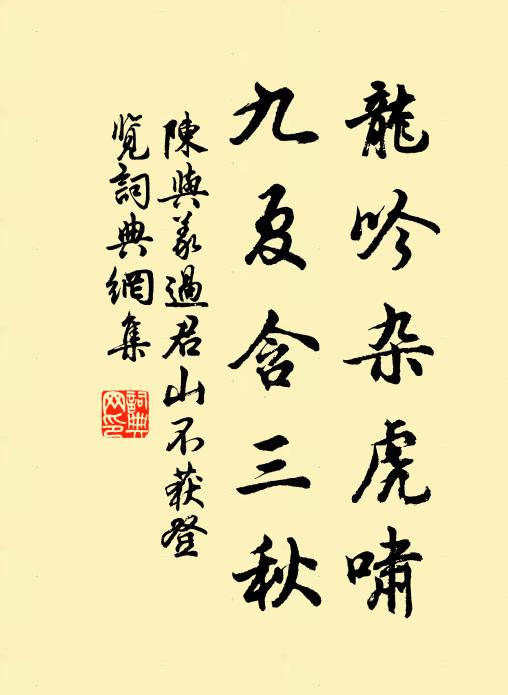 龍吟杂虎嘯
九夏含三秋
陳與義過君山不获登
覽詞典網集
詞典网印